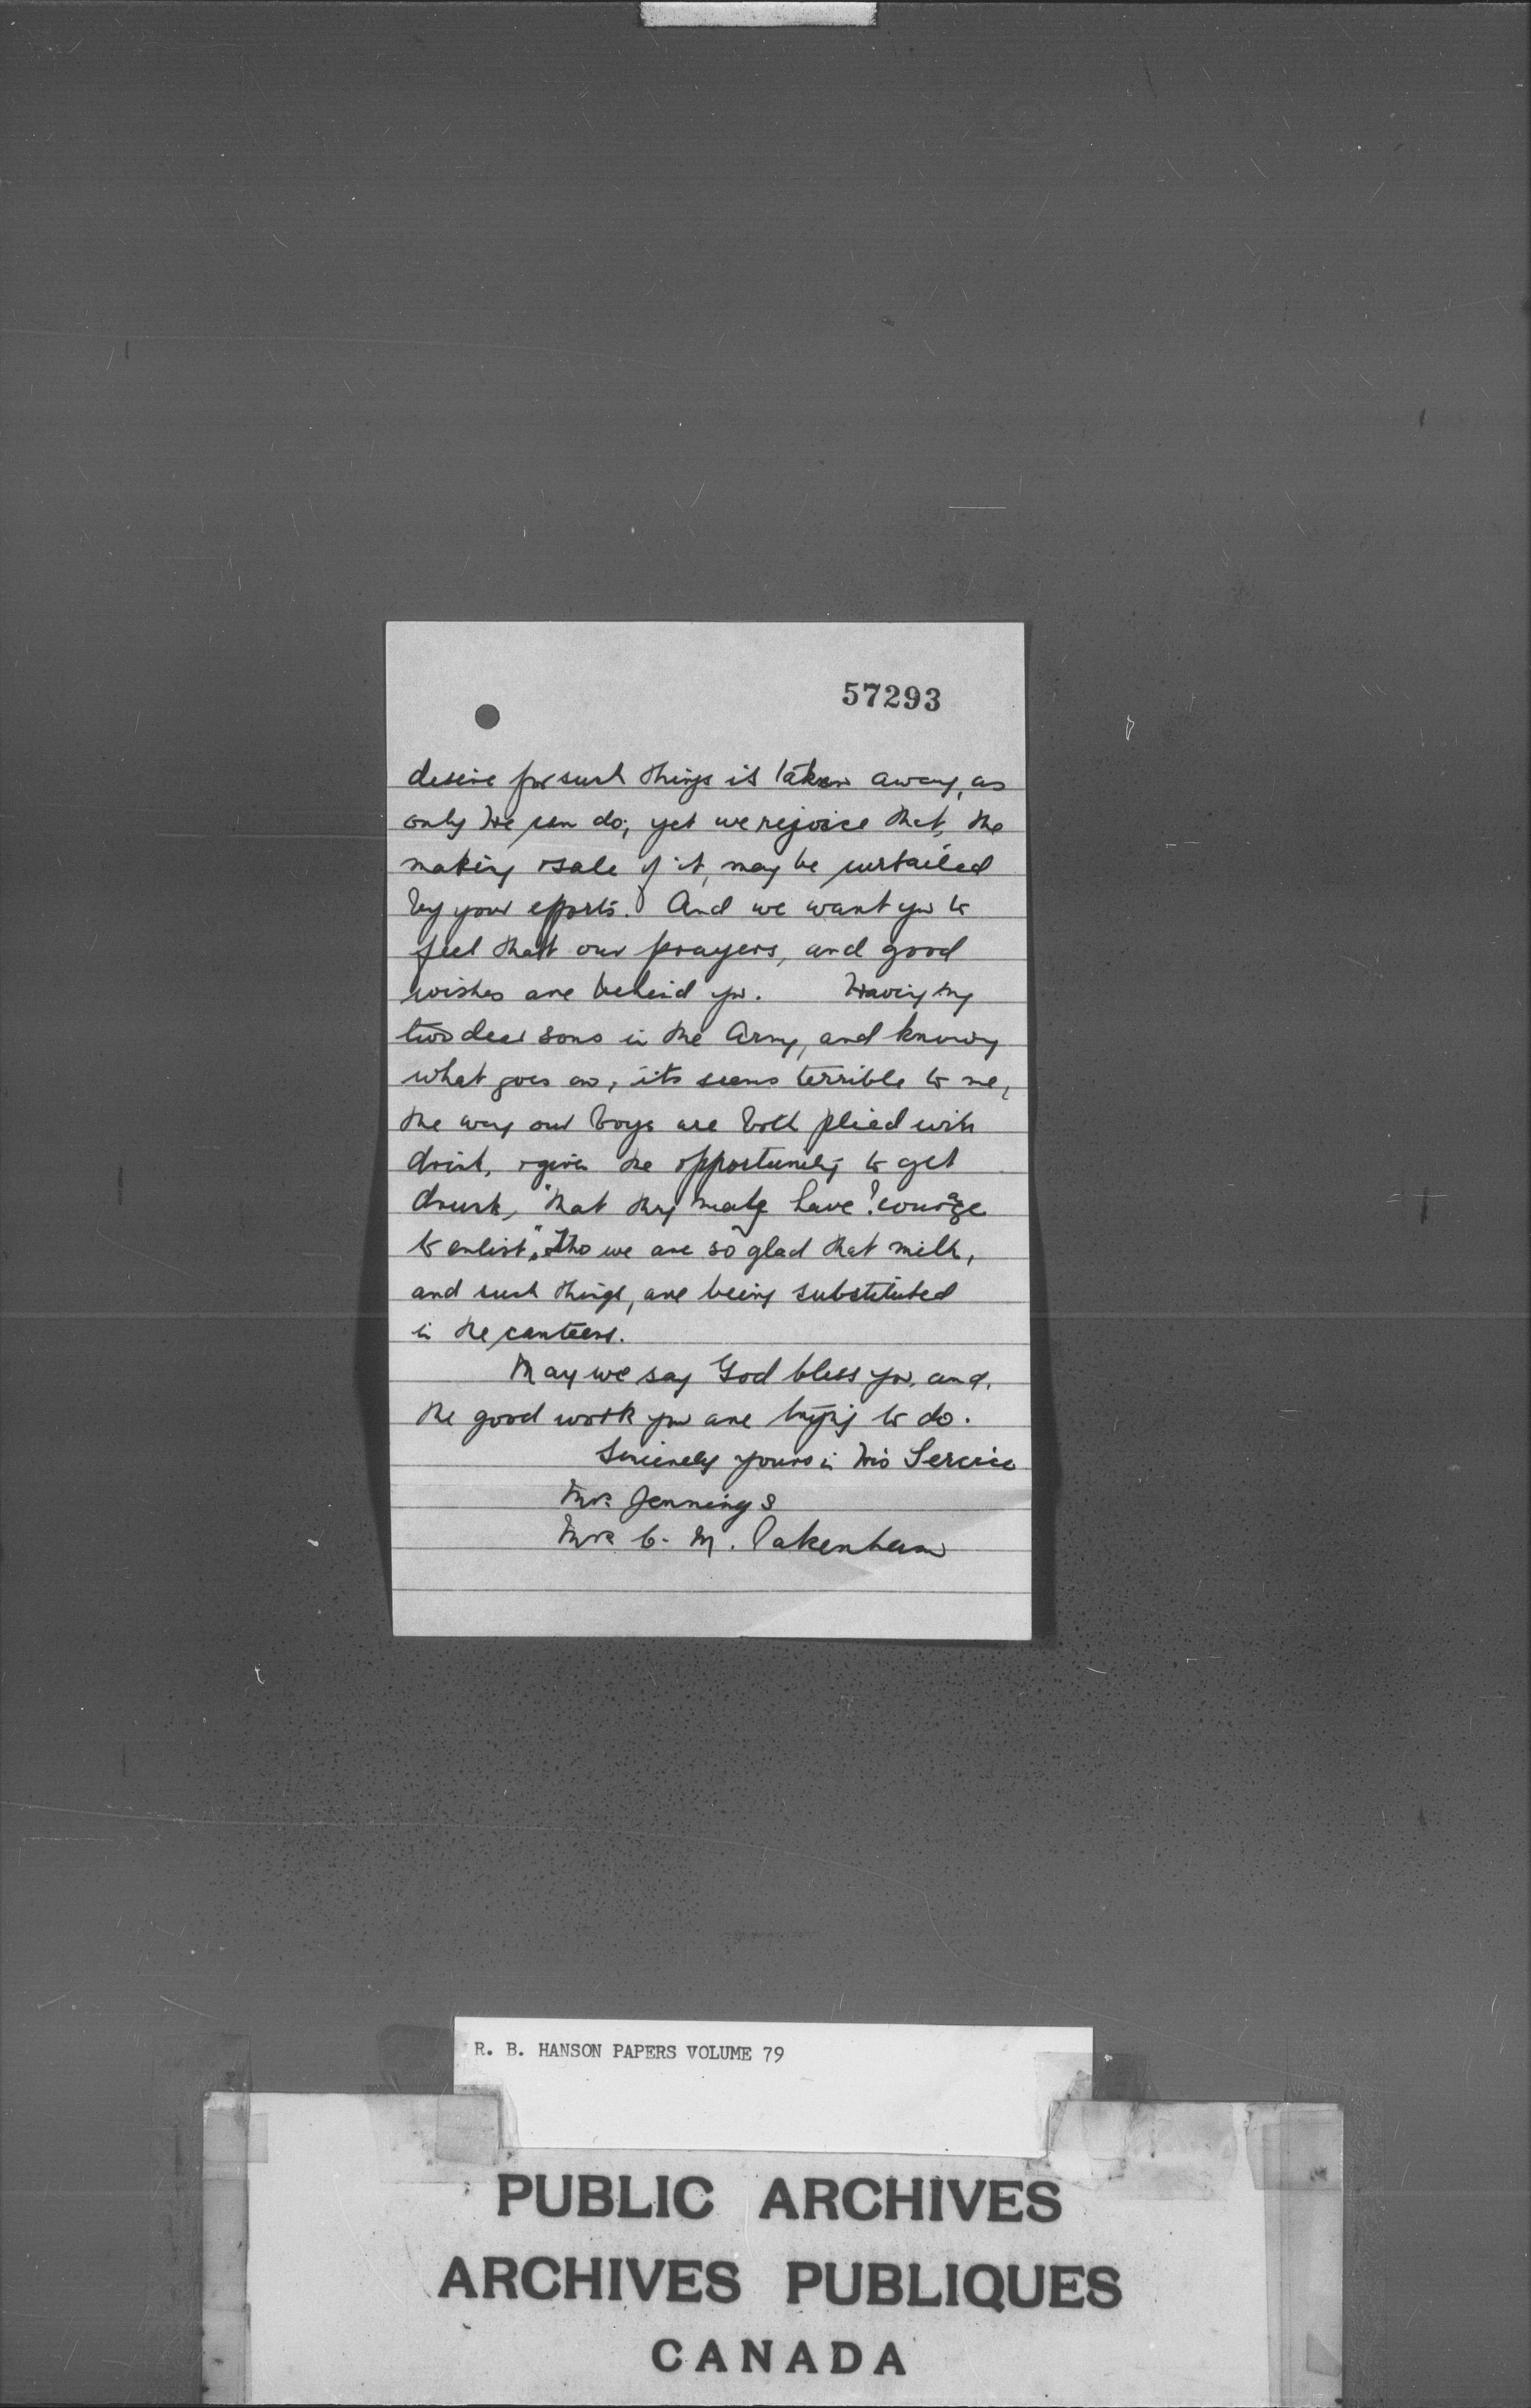 57293
desire for such things is taken away, as
only He can do; yet we rejoice that, the
making & sale of it, may be curtailed
by your efforts. And we want you to
feel that our prayers, and good
wishes are behind you. Having my
two dear sons in the Army, and knowing
what goes on, its seems terrible to me,
the way our boys are both plied with
drink, & given the opportunity to get
drunk, "that they may have! courage
to enlist", tho we are so glad that milk,
and such things, are being substituted
in the canteens.
May we say God bless you, and,
the good work you are trying to do.
Sincerely yours in His Service
Mrs. Jennings
Mrs C. M. Pakenham
R. B. HANSON PAPERS VOLUME 79
PUBLIC ARCHIVES
ARCHIVES PUBLIQUES
CANADA